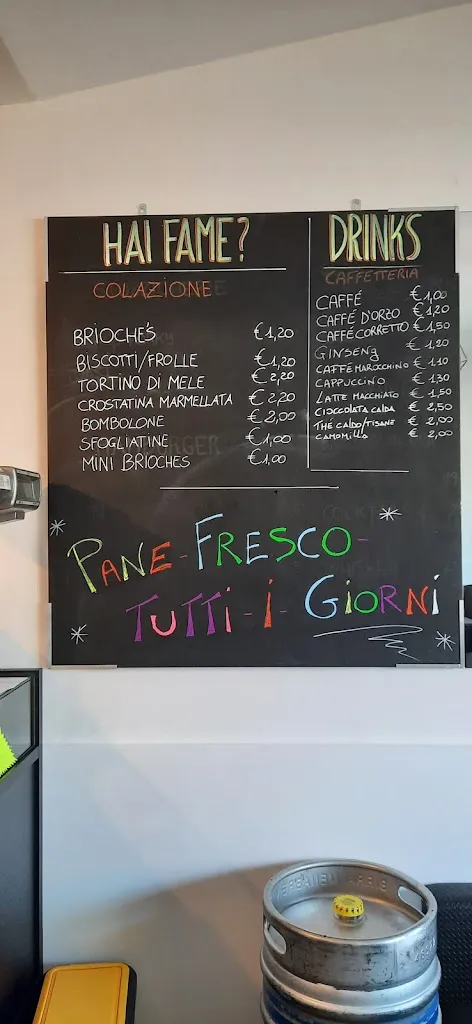 HAI FAME?
COLAZIONE
BRIOCHE'S €1,20
BISCOTTI/FROLLE €1,20
TORTINO DI MELE €2,20
CROSTATINA MARMELLATA €2,20
BOMBOLONE €2,00
SFOGLIATINE €1,00
MINI BRIOCHES €1.00
DRINKS
CAFFETTERIA
CAFFÉ €1,00
CAFFÉ D'ORZO €1,20
CAFFÉ CORRETTO €1,50
GINSENG €1,20
CAFFÉ MAROCCHINO €1.10
CAPPUCCINO €1,30
LATTE MACCHIATO €1,50
CIOCCOLATA CALDA €2,50
THÉ CALDO/TISANE €2,00
CAMOMILLA €2,00
PANE-FRESCO-
TUTTI-I-GIORNI